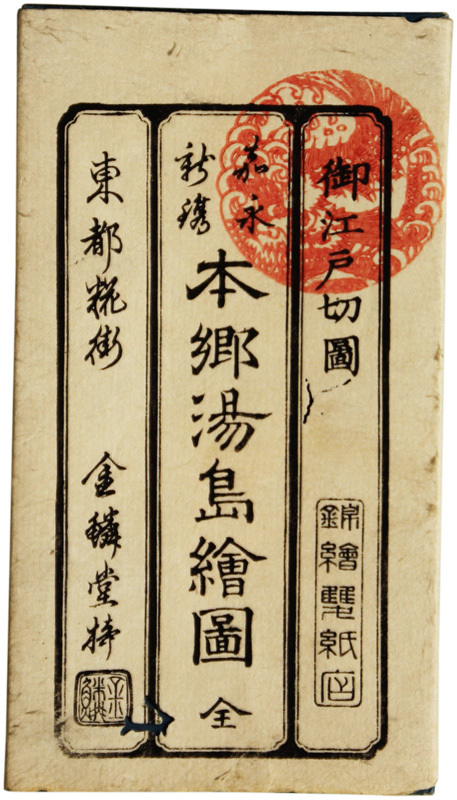 御江戸切圖
錦繪雙紙店
嘉永
新鐫
本郷湯島繪圖 全
東都糀街 金鱗堂梓